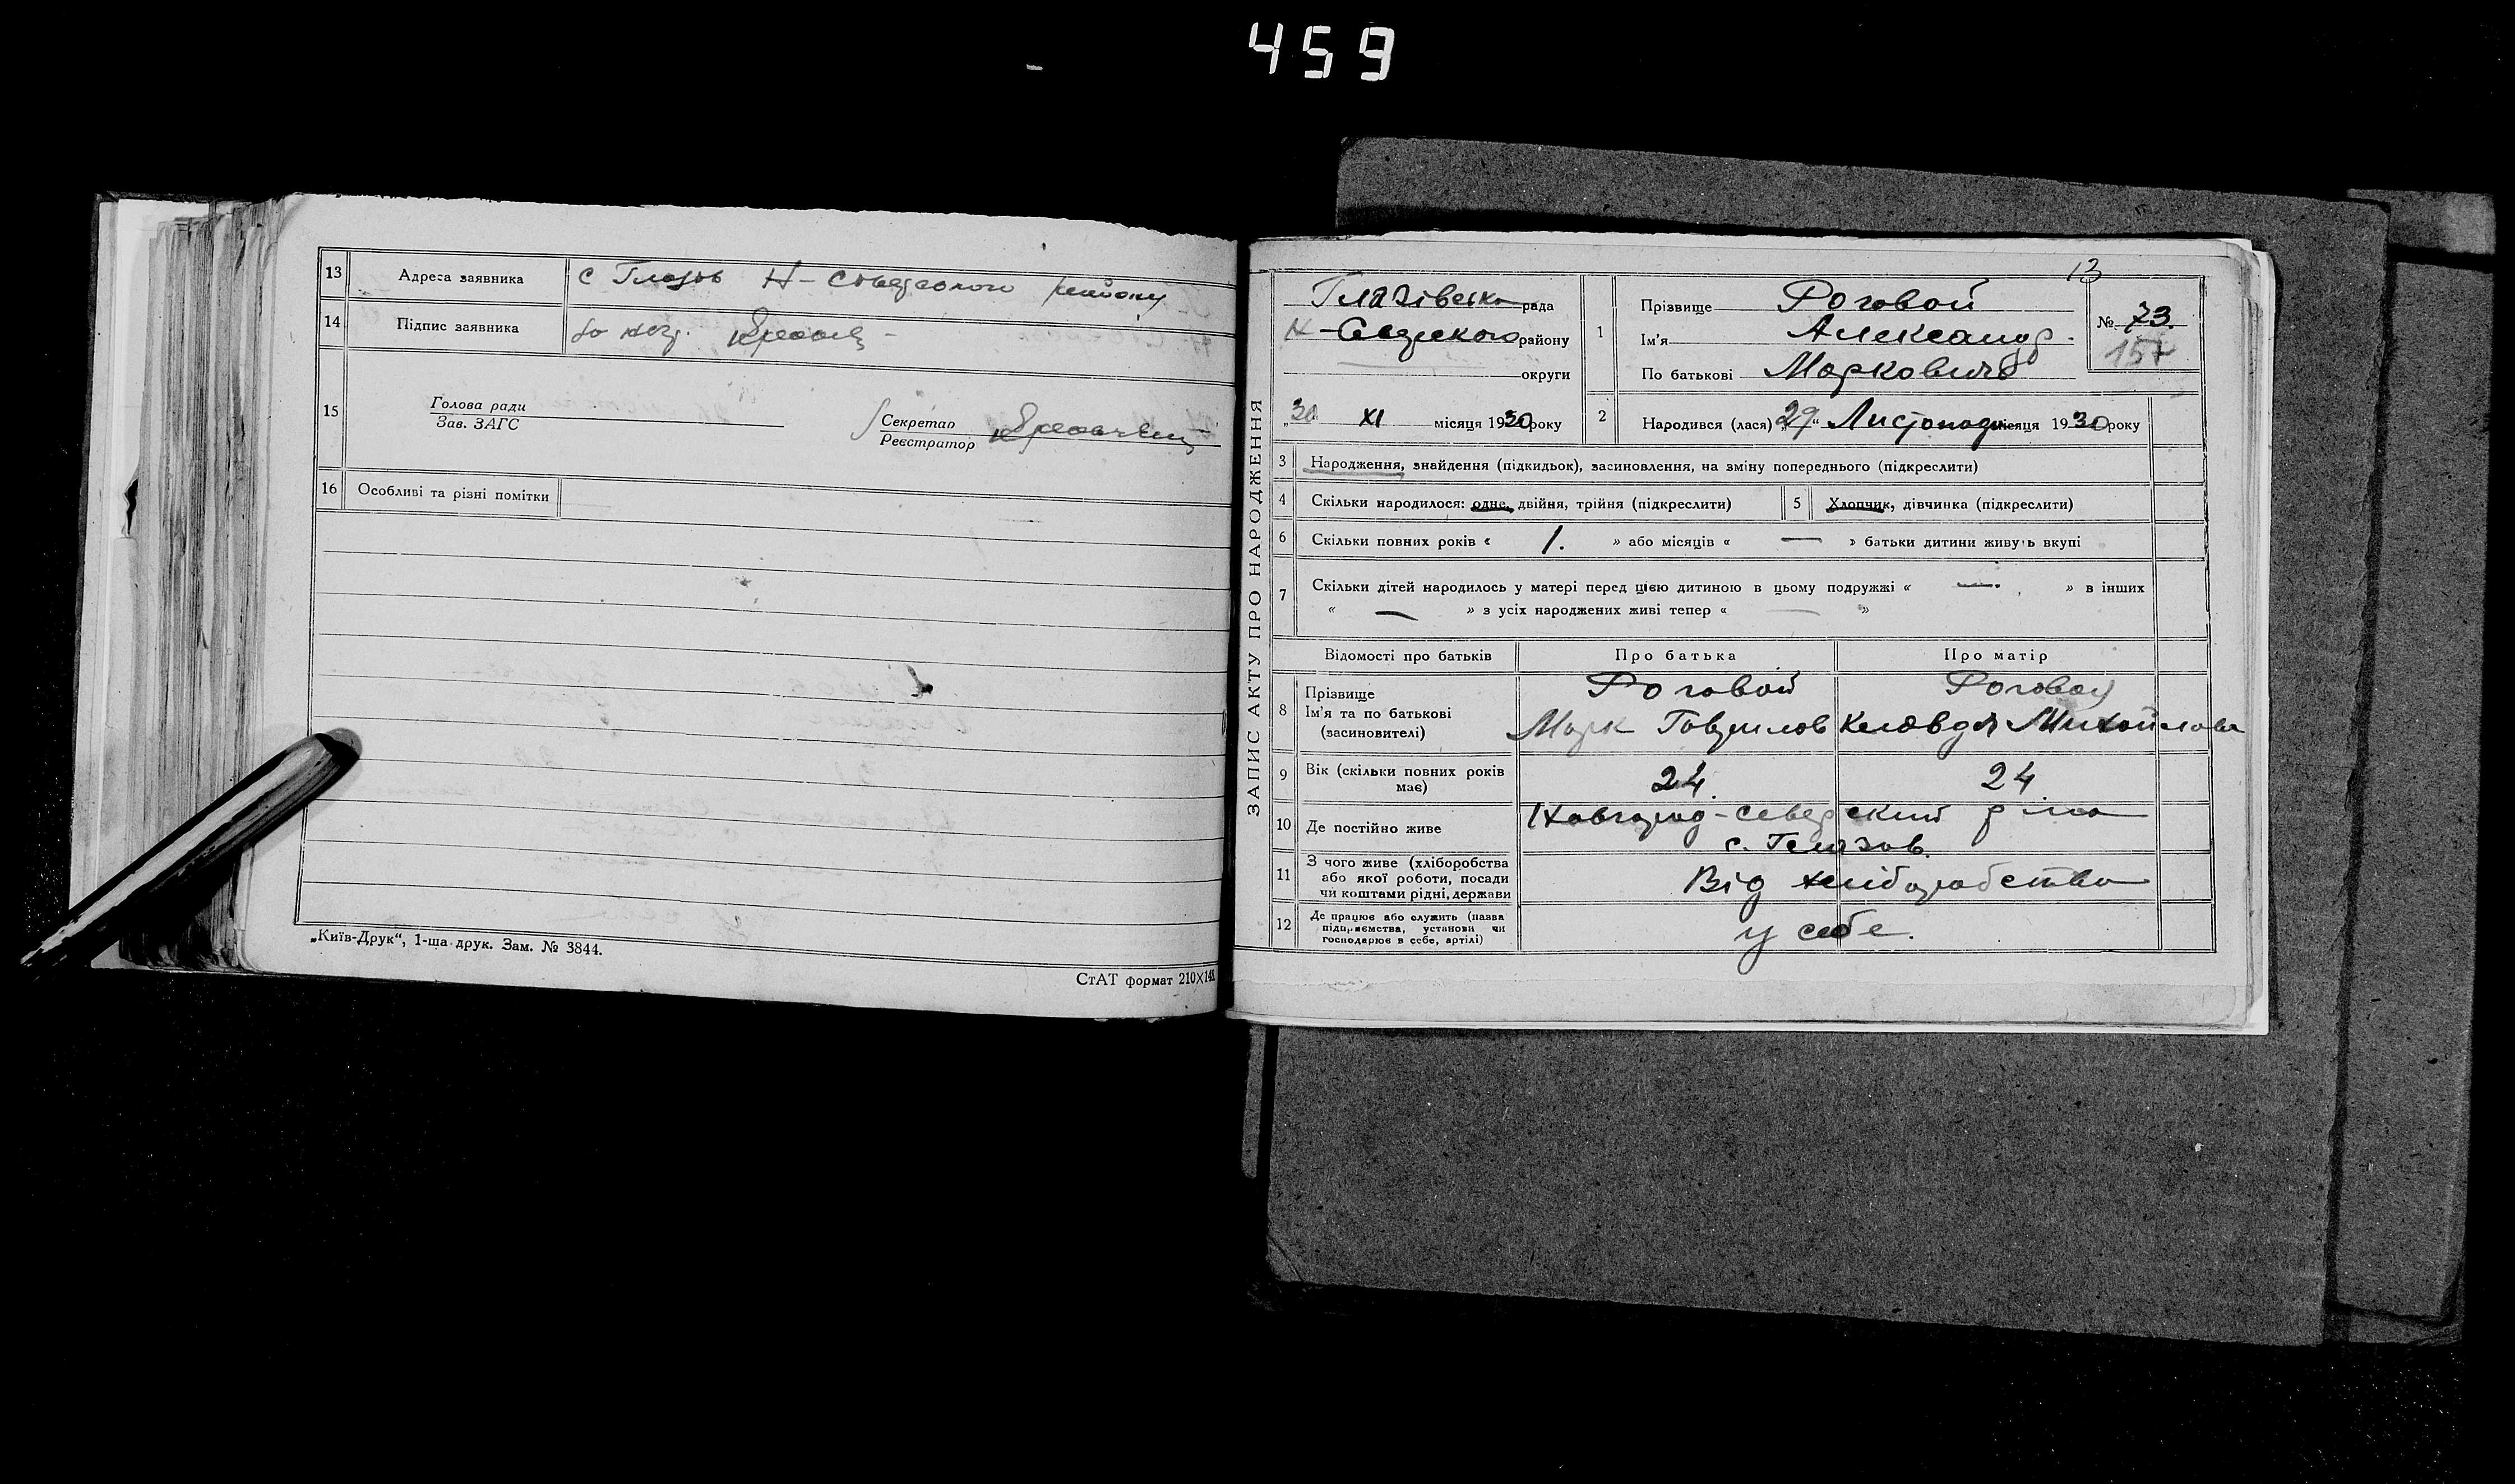 459
13 Адреса заявника с Глазов Н-Северского району
14 Підпис заявника
15 Голова ради
Зав. ЗАГС
Секретар
Реєстратор
16 Особливі та різні помітки
„Київ-Друк“, 1-ша друк. Зам. № 3844.
СтАТ формат 210×148
ЗАПИС АКТУ ПРО НАРОДЖЕННЯ
13
Глазівська рада
Н-Сіверського району
округи
„30“ XI місяця 1930 року
1 Прізвище Роговой
Ім'я Александр
По батькові Маркович
№ 73.
157
2 Народився (лася) „29“ Листопада місяця 1930 року
3 Народження, знайдення (підкидьок), засиновлення, на зміну попереднього (підкреслити)
4 Скільки народилося: одне, двійня, трійня (підкреслити) 5 Хлопчик, дівчинка (підкреслити)
6 Скільки повних років « 1. » або місяців « — » батьки дитини живуть вкупі
7 Скільки дітей народилось у матері перед цією дитиною в цьому подружжі « — » в інших
« — » з усіх народжених живі тепер « — »
Відомості про батьків Про батька Про матір
8 Прізвище Роговой Роговая
Ім'я та по батькові Марк Гаврилов Клавдя Михайлова
(засновителі)
9 Вік (скільки повних років має) 24. 24
10 Де постійно живе Новгород-Северский р-на
с. Глазов.
11 З чого живе (хліборобства або якої роботи, посади чи коштами рідні, держави Від хліборобства
12 Де працює або служить (назва підприємства, установи чи господарює в себе, артілі) у себе.